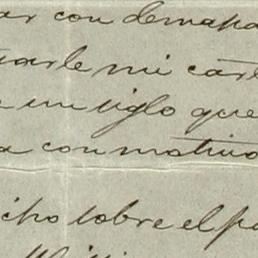 ar con demasa
arle mi cart
un siglo que
a con motivo
icho sobre el pa